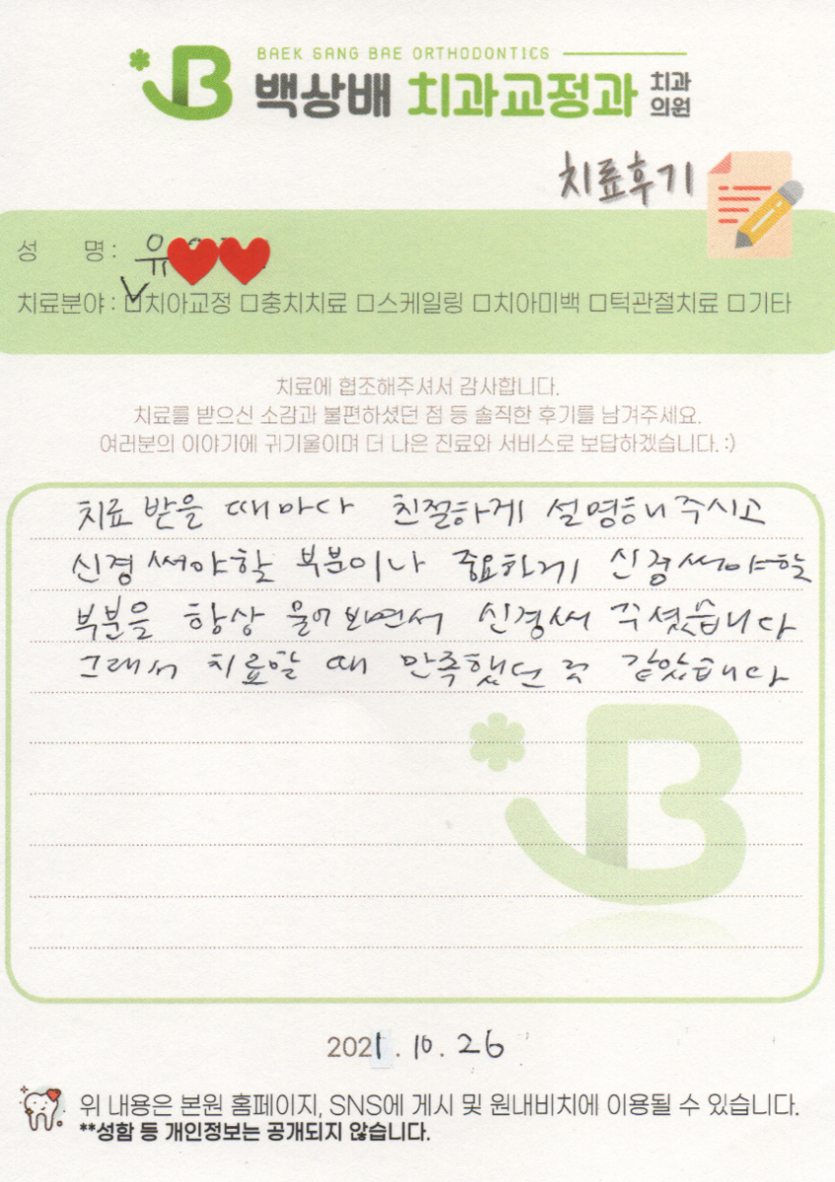 BAEK SANG BAE ORTHODONTICS
백상배 치과교정과 치과의원
치료후기
성 명: 유
치료분야: ☑치아교정 □충치치료 □스케일링 □치아미백 □턱관절치료 □기타
치료에 협조해주셔서 감사합니다.
치료를 받으신 소감과 불편하셨던 점 등 솔직한 후기를 남겨주세요.
여러분의 이야기에 귀기울이며 더 나은 진료와 서비스로 보답하겠습니다. :)
치료 받을 때마다 친절하게 설명해주시고
신경써야할 부분이나 중요하게 신경써야할
부분을 항상 물어보면서 신경써 주셨습니다
그래서 치료할 때 만족했던 것 같았습니다
2021.10.26
위 내용은 본원 홈페이지, SNS에 게시 및 원내비치에 이용될 수 있습니다.
**성함 등 개인정보는 공개되지 않습니다.